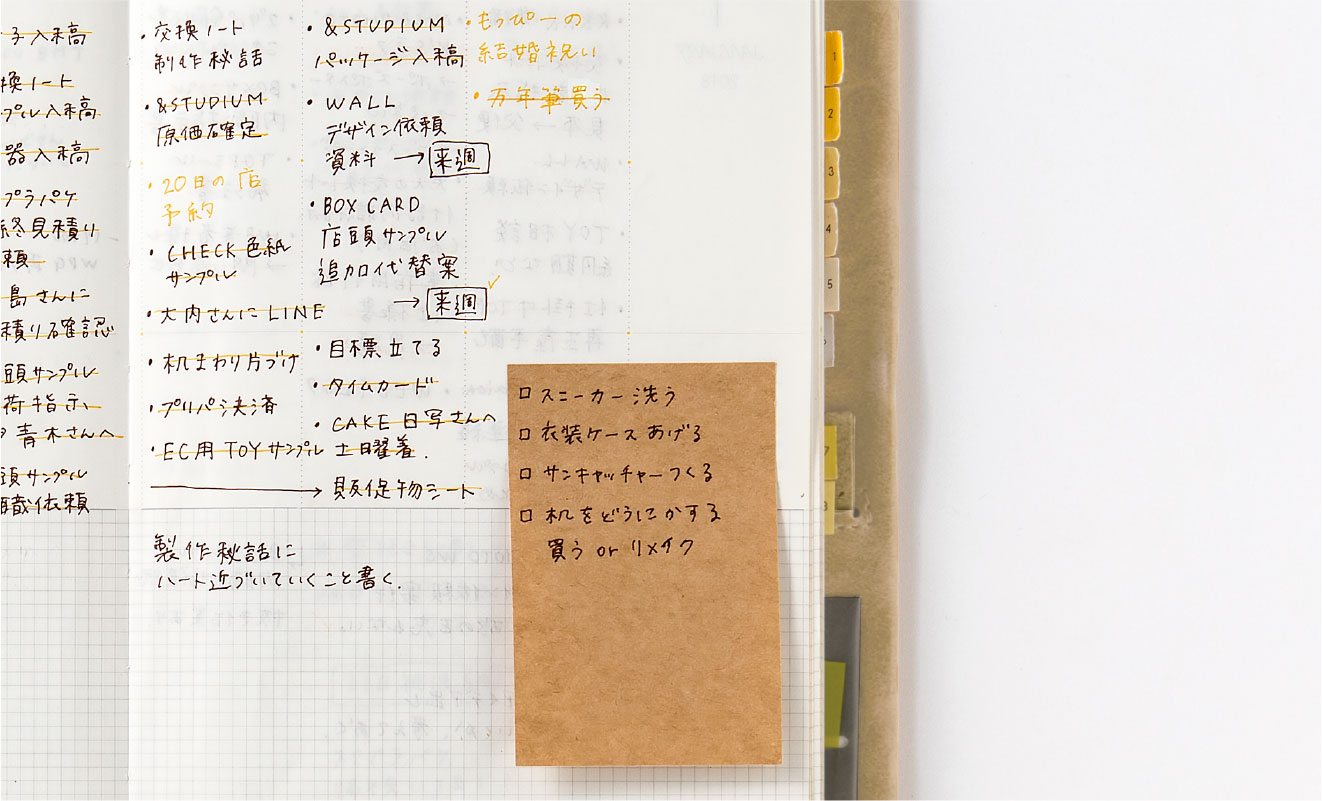 子入稿
換ノート
プル入稿
器入稿
プラパケ
終見積り
頼
島さんに
積り確認
頭サンプル
荷指示、
青木さんへ
頭サンプル
職依頼
・交換ノート
制作秘話
・&STUDIUM
原価確定
・20日の店
予約
・CHECK色紙
サンプル
・大内さんにLINE
・机まわり片づけ
・プリパシ決済
・EC用TOYサンプル
製作秘話に
ハート近づいていくこと書く.
・&STUDIUM
パッケージ入稿
・WALL
デザイン依頼
資料 → 来週
・BOX CARD
店頭サンプル
追加代替案
→ 来週 ✓
・目標立てる
・タイムカード
・CAKE日写さんへ
土日曜着.
→ 販促物シート
・もっぴーの
結婚祝い
・万年筆買う
□ スニーカー洗う
□ 衣装ケースあげる
□ サンキャッチャーつくる
□ 机をどうにかする
買う or リメイク
1
2
3
4
5